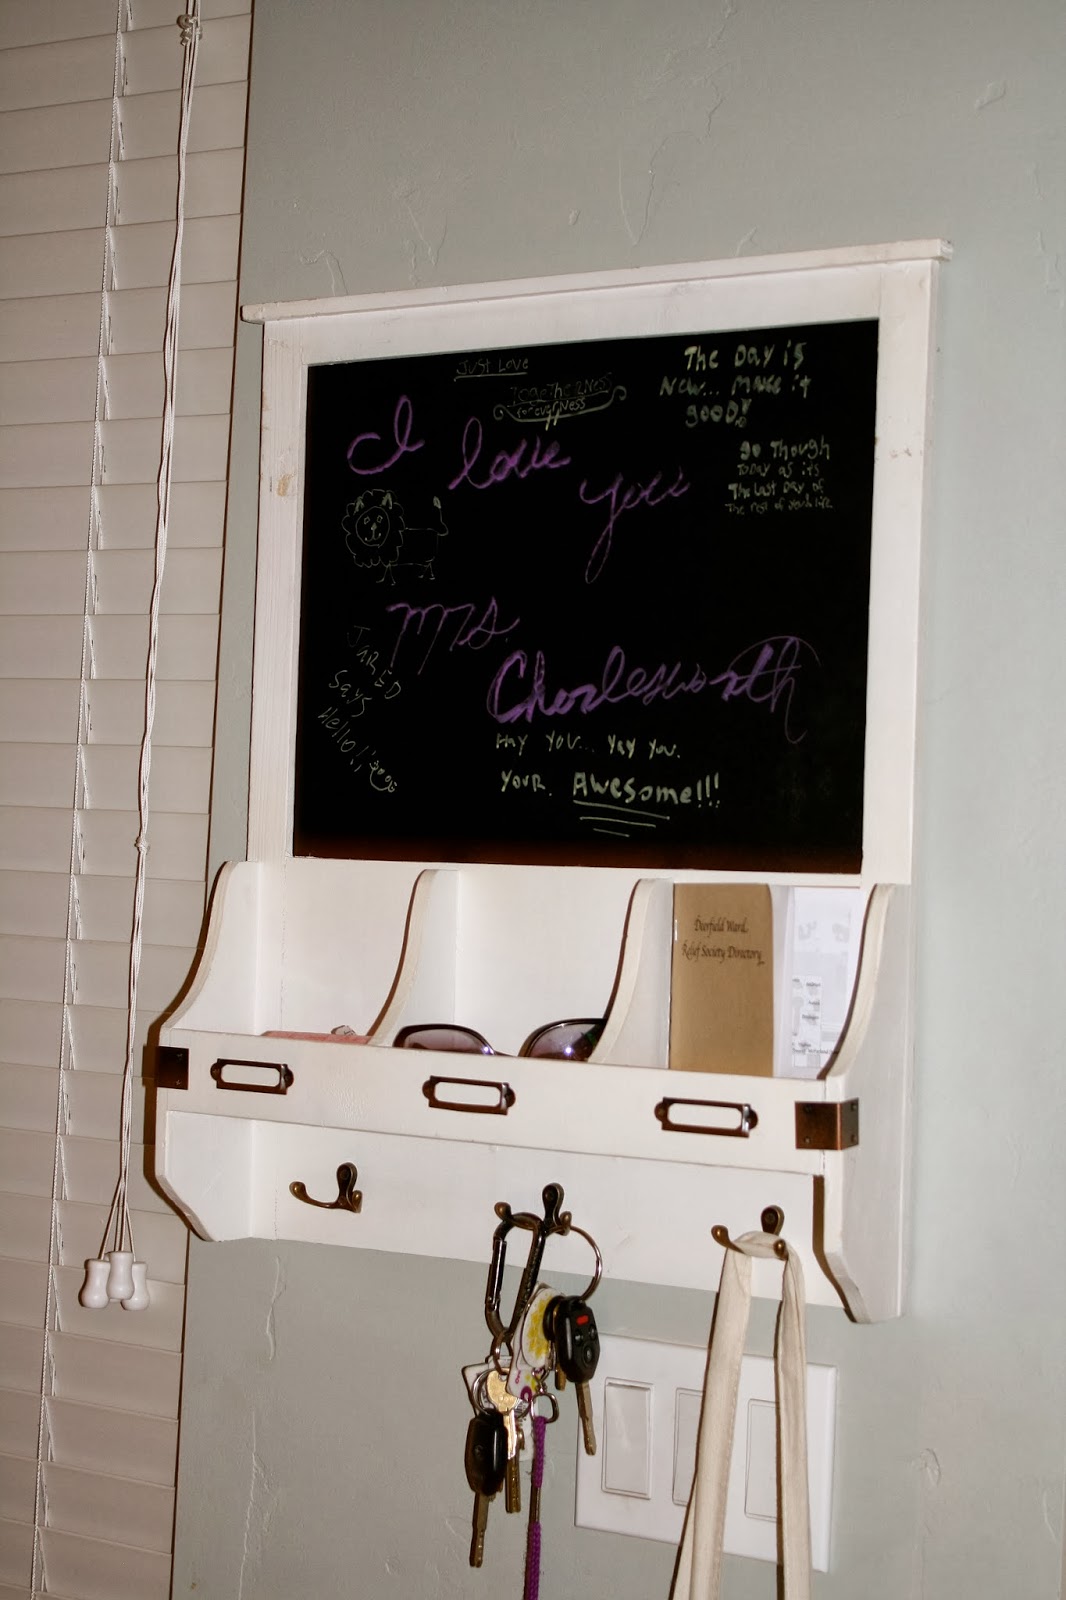 Just Love
TogeTherNess
foreverNess
The Day is
New... Make it
good!
I love you
go Though
Today as its
The last Day of
The rest of your life
Mrs.
Charlesworth
JARED
Says
Hello!!
Hay you... yay you.
your. Awesome!!!
Dierfield Ward
Relief Society Directory